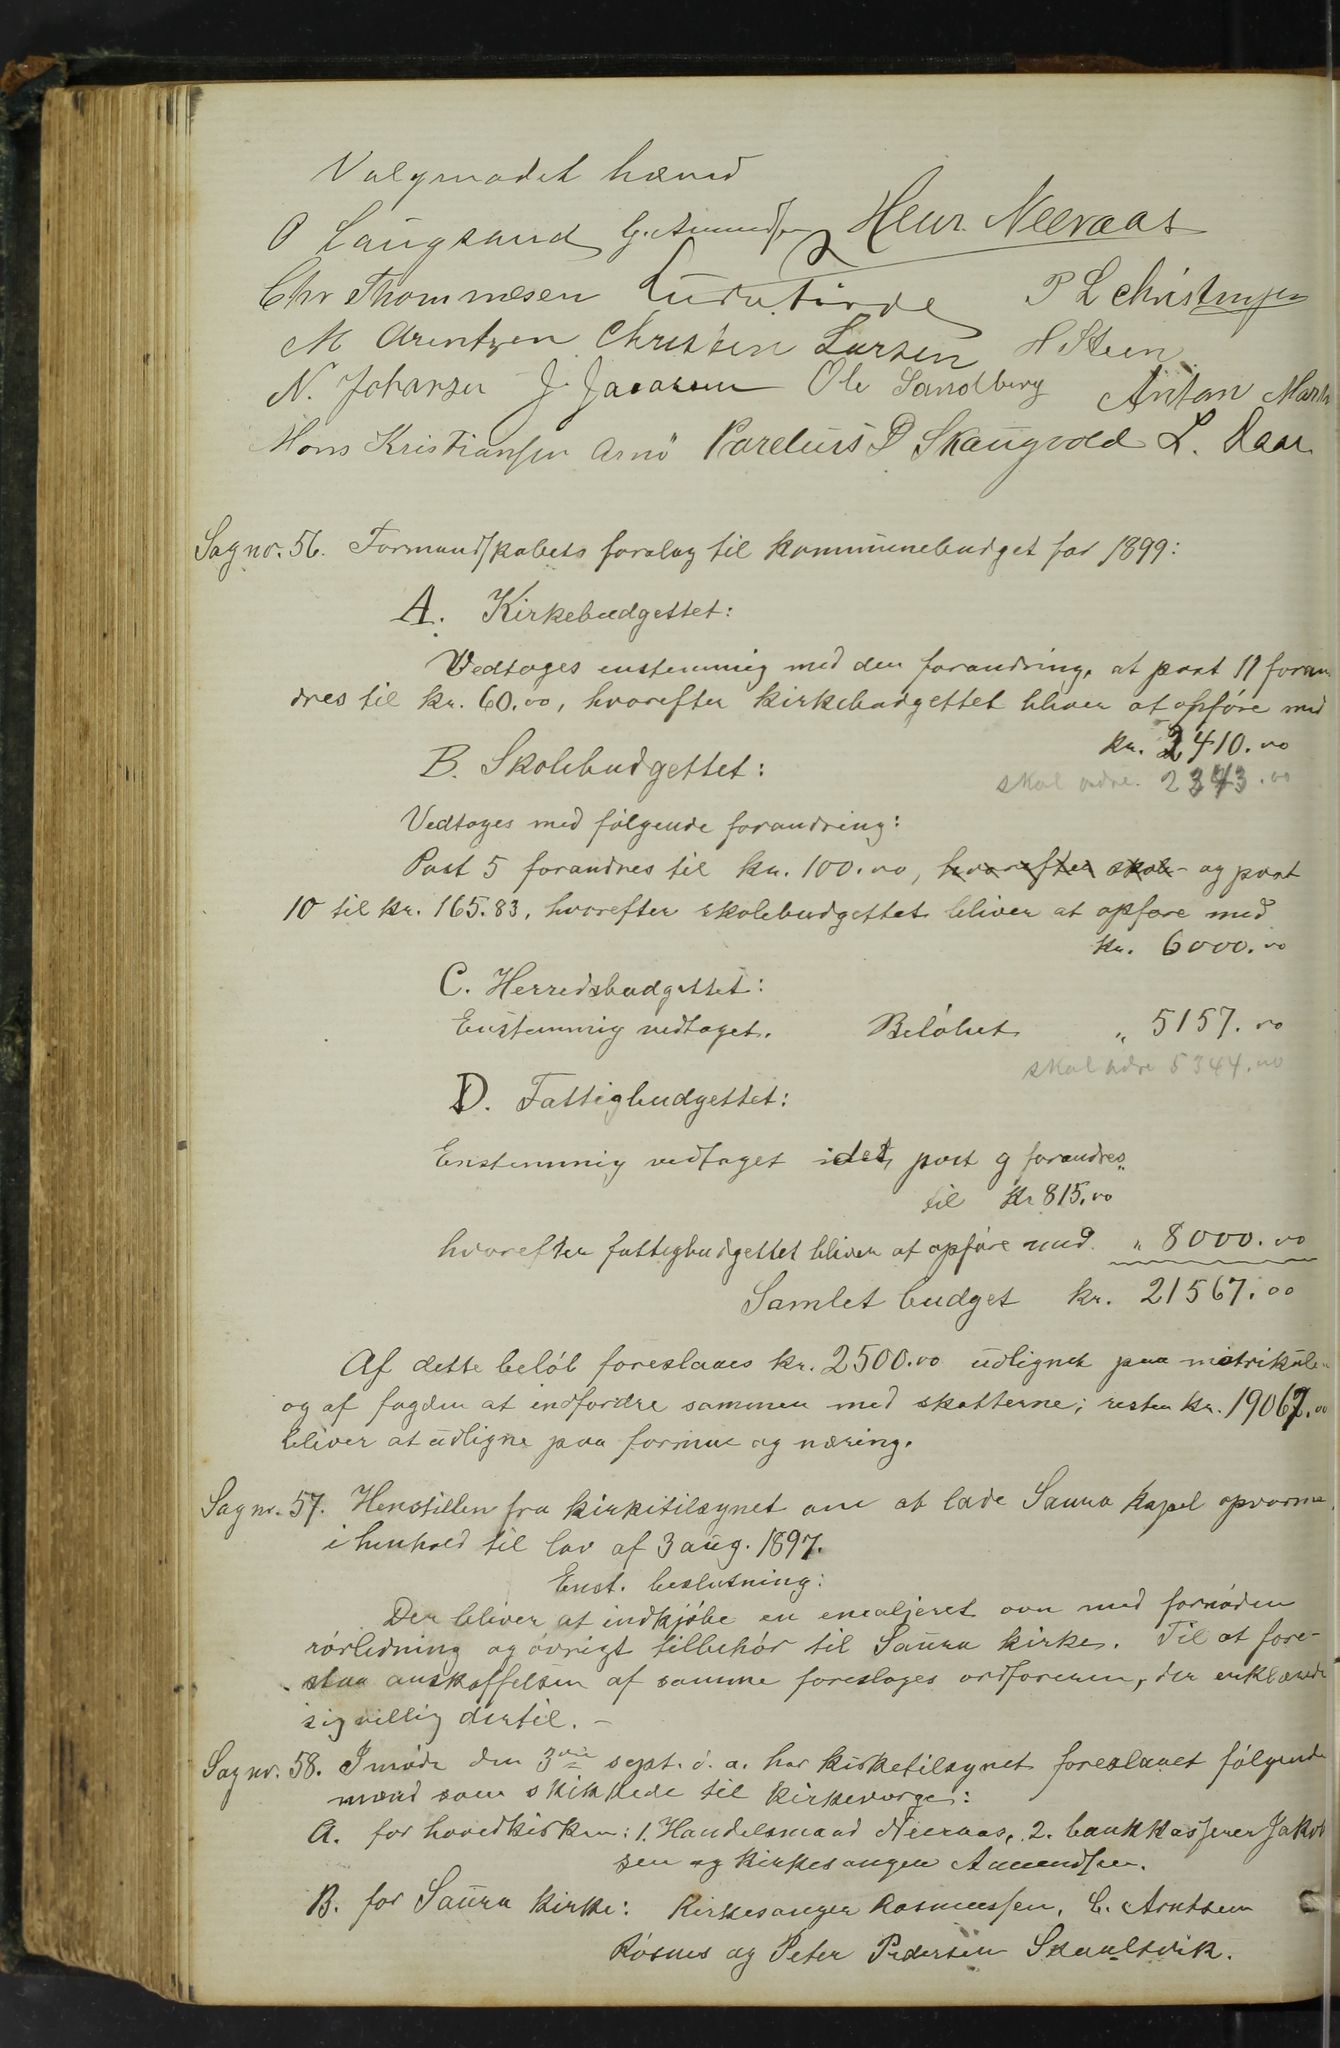 Valgmødet hævet
O Laugsand G. Amundsen Henr. Neeraas
Chr Thommesen P L Christensen
M Arentzen Christen Larsen H Steen
N. Johansen J. Jacobsen Ole Sandberg Anton Martin
Hans Kristiansen Arnö Parelius P Skaugvold L.
Sag nr. 56. Formandskabets forslag til kommunebudget for 1899:
A. Kirkebudgettet:
Vedtoges enstemmig med den forandring, at post 11 foran
dres til kr. 60.00, hvorefter kirkebudgettet bliver at opføre med
kr. 2410.00
B. Skolebudgettet:
skal være 2343.00
Vedtoges med følgende forandring:
Post 5 forandres til kr. 100.00, hvorefter skole- og post
10 til kr. 165.83, hvorefter skolebudgettet bliver at opføre med
kr. 6000.00
C. Herredsbudgettet:
Enstemmig vedtaget. Beløbet „ 5157.00
skal være 5344.00
D. Fattigbudgettet:
Enstemmig vedtaget idet post 9 forandres
til kr 815.00
hvorefter fattigbudgettet bliver at opføre med „ 8000.00
Samlet budget kr. 21567.00
Af dette beløb foreslaaes kr. 2500.00 udlignet paa matrikule
og af fogden at indfordre sammen med skatterne; resten kr. 19067.00
bliver at udligne paa formue og næring.
Sag nr. 57. Henstillen fra kirketilsynet om at lade Saura kapel opvarme
i henhold til lov af 3 aug. 1897.
Enst. beslutning:
Der bliver at indkjøbe en emaljeret ovn med fornøden
rørledning og øvrigt tilbehør til Saura kirke. Til at fore-
staa anskaffelsen af samme foresloges ordføreren, der erklærede
sig villig dertil. –
Sag nr. 58. I møde den 3die sept. d. a. har kirketilsynet foreslaaet følgende
mænd som skikkede til kirkeværge:
A. for hovedkirken: 1. Handelsmand Neeraas, 2. bankkasserer Jakob
sen og kirkesanger Amundsen.
B. for Saura kirke: Kirkesanger Rasmussen, C. Arntsen
Røsnes og Peter Pedersen Skaulsvik.